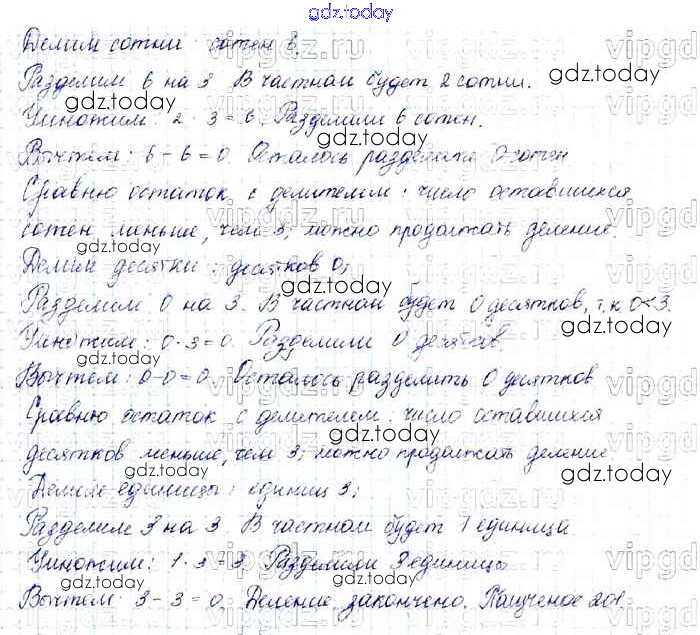 gdz.today
Делим сотни: сотен 3.
Разделим 6 на 3. В частном будет 2 сотни.
Умножим: 2 · 3 = 6. Разделили 6 сотен.
Вычтем: 6 - 6 = 0. Осталось разделить 0 сотен
Сравню остаток с делителем: число оставшихся
сотен меньше, чем 3; можно продолжать деление.
Делим десятки: десятков 0;
Разделим 0 на 3. В частном будет 0 десятков, т.к 0<3.
Умножим: 0·3=0. Разделили 0 десятков.
Вычтем: 0-0=0. Осталось разделить 0 десятков
Сравню остаток с делителем: число оставшихся
десятков меньше, чем 3; можно продолжать деление
Делим единицы: единиц 3;
Разделим 3 на 3. В частном будет 1 единица.
Умножим: 1·3=3. Разделили 3 единицы
Вычтем: 3-3=0. Деление закончено. Полученое 201.